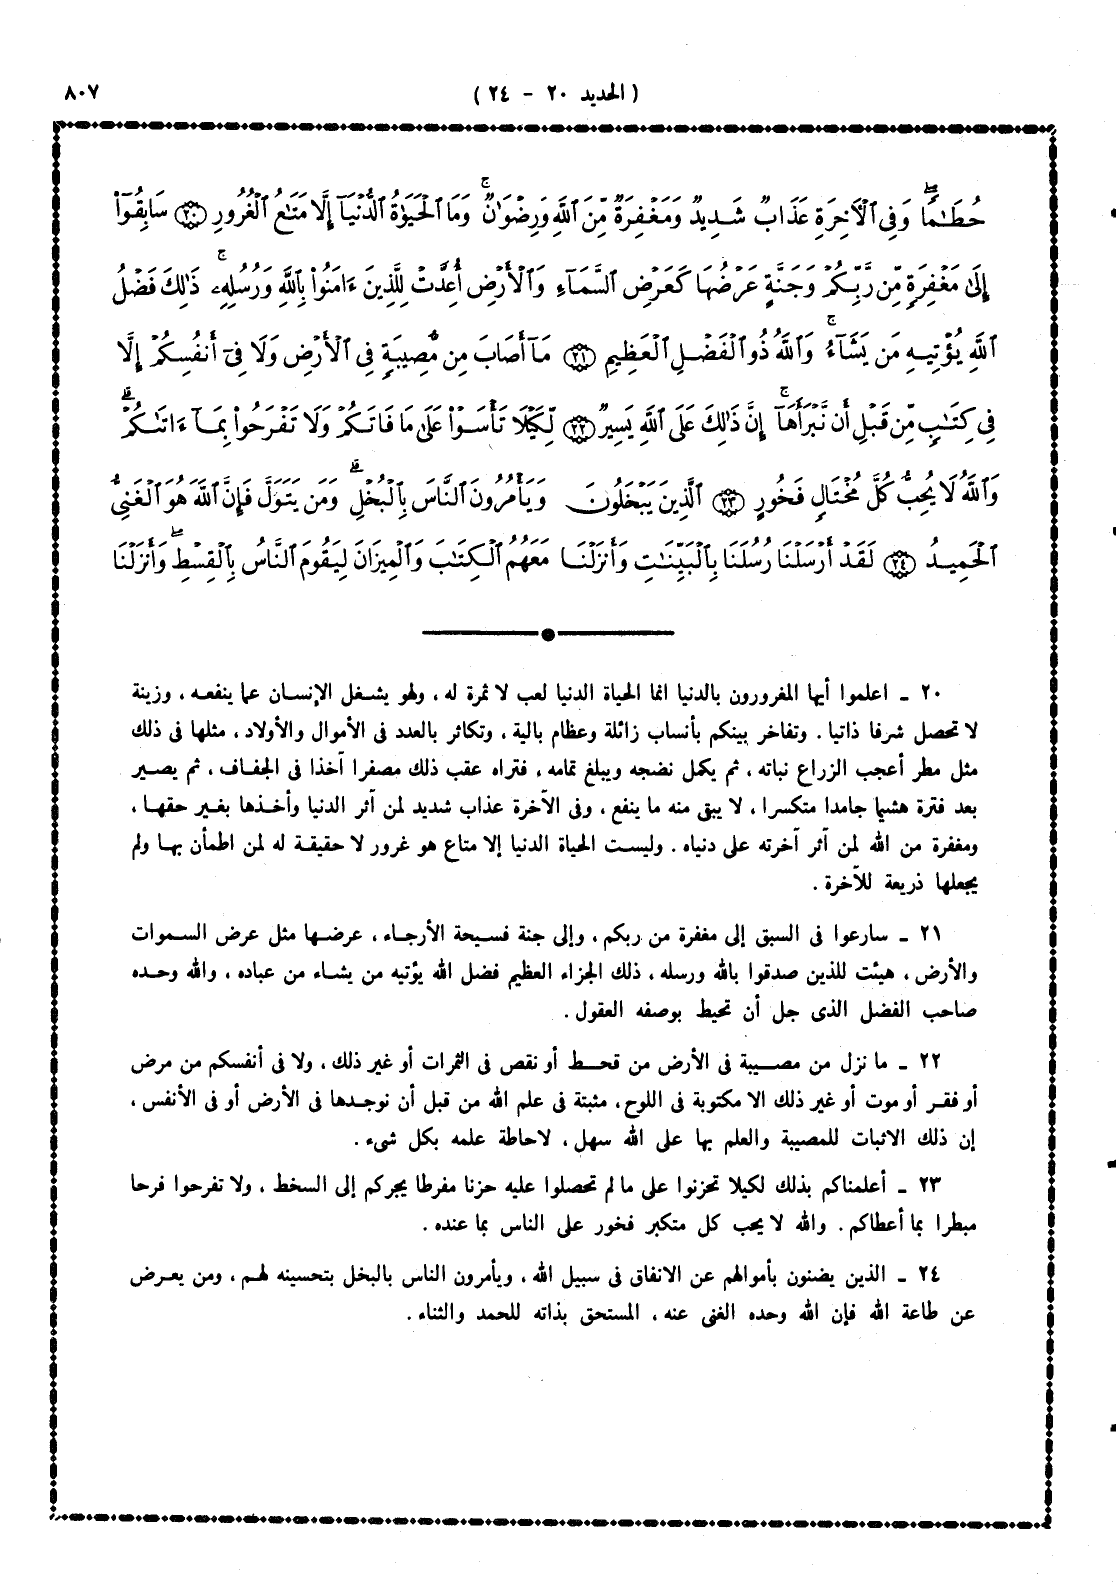 ( الحديد ٢٠ - ٢٤ )
٨٠٧
حُطَـٰمًاۖ وَفِى ٱلْـَٔاخِرَةِ عَذَابٌ شَدِيدٌ وَمَغْفِرَةٌ مِّنَ ٱللَّهِ وَرِضْوَٰنٌۚ وَمَا ٱلْحَيَوٰةُ ٱلدُّنْيَآ إِلَّا مَتَـٰعُ ٱلْغُرُورِ ٢٠ سَابِقُوٓا۟
إِلَىٰ مَغْفِرَةٍ مِّن رَّبِّكُمْ وَجَنَّةٍ عَرْضُهَا كَعَرْضِ ٱلسَّمَآءِ وَٱلْأَرْضِ أُعِدَّتْ لِلَّذِينَ ءَامَنُوا۟ بِٱللَّهِ وَرُسُلِهِۦۚ ذَٰلِكَ فَضْلُ
ٱللَّهِ يُؤْتِيهِ مَن يَشَآءُۚ وَٱللَّهُ ذُو ٱلْفَضْلِ ٱلْعَظِيمِ ٢١ مَآ أَصَابَ مِن مُّصِيبَةٍ فِى ٱلْأَرْضِ وَلَا فِىٓ أَنفُسِكُمْ إِلَّا
فِى كِتَـٰبٍ مِّن قَبْلِ أَن نَّبْرَأَهَآۚ إِنَّ ذَٰلِكَ عَلَى ٱللَّهِ يَسِيرٌ ٢٢ لِّكَيْلَا تَأْسَوْا۟ عَلَىٰ مَا فَاتَكُمْ وَلَا تَفْرَحُوا۟ بِمَآ ءَاتَىٰكُمْۗ
وَٱللَّهُ لَا يُحِبُّ كُلَّ مُخْتَالٍ فَخُورٍ ٢٣ ٱلَّذِينَ يَبْخَلُونَ وَيَأْمُرُونَ ٱلنَّاسَ بِٱلْبُخْلِۗ وَمَن يَتَوَلَّ فَإِنَّ ٱللَّهَ هُوَ ٱلْغَنِىُّ
ٱلْحَمِيدُ ٢٤ لَقَدْ أَرْسَلْنَا رُسُلَنَا بِٱلْبَيِّنَـٰتِ وَأَنزَلْنَا مَعَهُمُ ٱلْكِتَـٰبَ وَٱلْمِيزَانَ لِيَقُومَ ٱلنَّاسُ بِٱلْقِسْطِۖ وَأَنزَلْنَا
٢٠ ـ اعلموا أيها المغرورون بالدنيا انما الحياة الدنيا لعب لا ثمرة له ، ولهو يشغل الإنسان عما ينفعه ، وزينة
لا تحصل شرفا ذاتيا . وتفاخر بينكم بأنساب زائلة وعظام بالية ، وتكاثر بالعدد فى الأموال والأولاد ، مثلها فى ذلك
مثل مطر أعجب الزراع نباته ، ثم يكمل نضجه ويبلغ تمامه ، فتراه عقب ذلك مصفرا آخذا فى الجفاف ، ثم يصير
بعد فترة هشيما جامدا متكسرا ، لا يبقى منه ما ينفع ، وفى الآخرة عذاب شديد لمن آثر الدنيا وأخذها بغير حقها ،
ومغفرة من الله لمن آثر آخرته على دنياه . وليست الحياة الدنيا إلا متاع هو غرور لا حقيقة له لمن اطمأن بها ولم
يجعلها ذريعة للآخرة .
٢١ ـ سارعوا فى السبق إلى مغفرة من ربكم ، وإلى جنة فسيحة الأرجاء ، عرضها مثل عرض السموات
والأرض ، هيئت للذين صدقوا بالله ورسله ، ذلك الجزاء العظيم فضل الله يؤتيه من يشاء من عباده ، والله وحده
صاحب الفضل الذى جل أن تحيط بوصفه العقول .
٢٢ ـ ما نزل من مصيبة فى الأرض من قحط أو نقص فى الثمرات أو غير ذلك ، ولا فى أنفسكم من مرض
أو فقر أو موت أو غير ذلك الا مكتوبة فى اللوح ، مثبتة فى علم الله من قبل أن نوجدها فى الأرض أو فى الأنفس ،
إن ذلك الاثبات للمصيبة والعلم بها على الله سهل ، لاحاطة علمه بكل شىء .
٢٣ ـ أعلمناكم بذلك لكيلا تحزنوا على ما لم تحصلوا عليه حزنا مفرطا يجركم إلى السخط ، ولا تفرحوا فرحا
مبطرا بما أعطاكم . والله لا يحب كل متكبر فخور على الناس بما عنده .
٢٤ ـ الذين يضنون بأموالهم عن الانفاق فى سبيل الله ، ويأمرون الناس بالبخل بتحسينه لهم ، ومن يعرض
عن طاعة الله فإن الله وحده الغنى عنه ، المستحق بذاته للحمد والثناء .